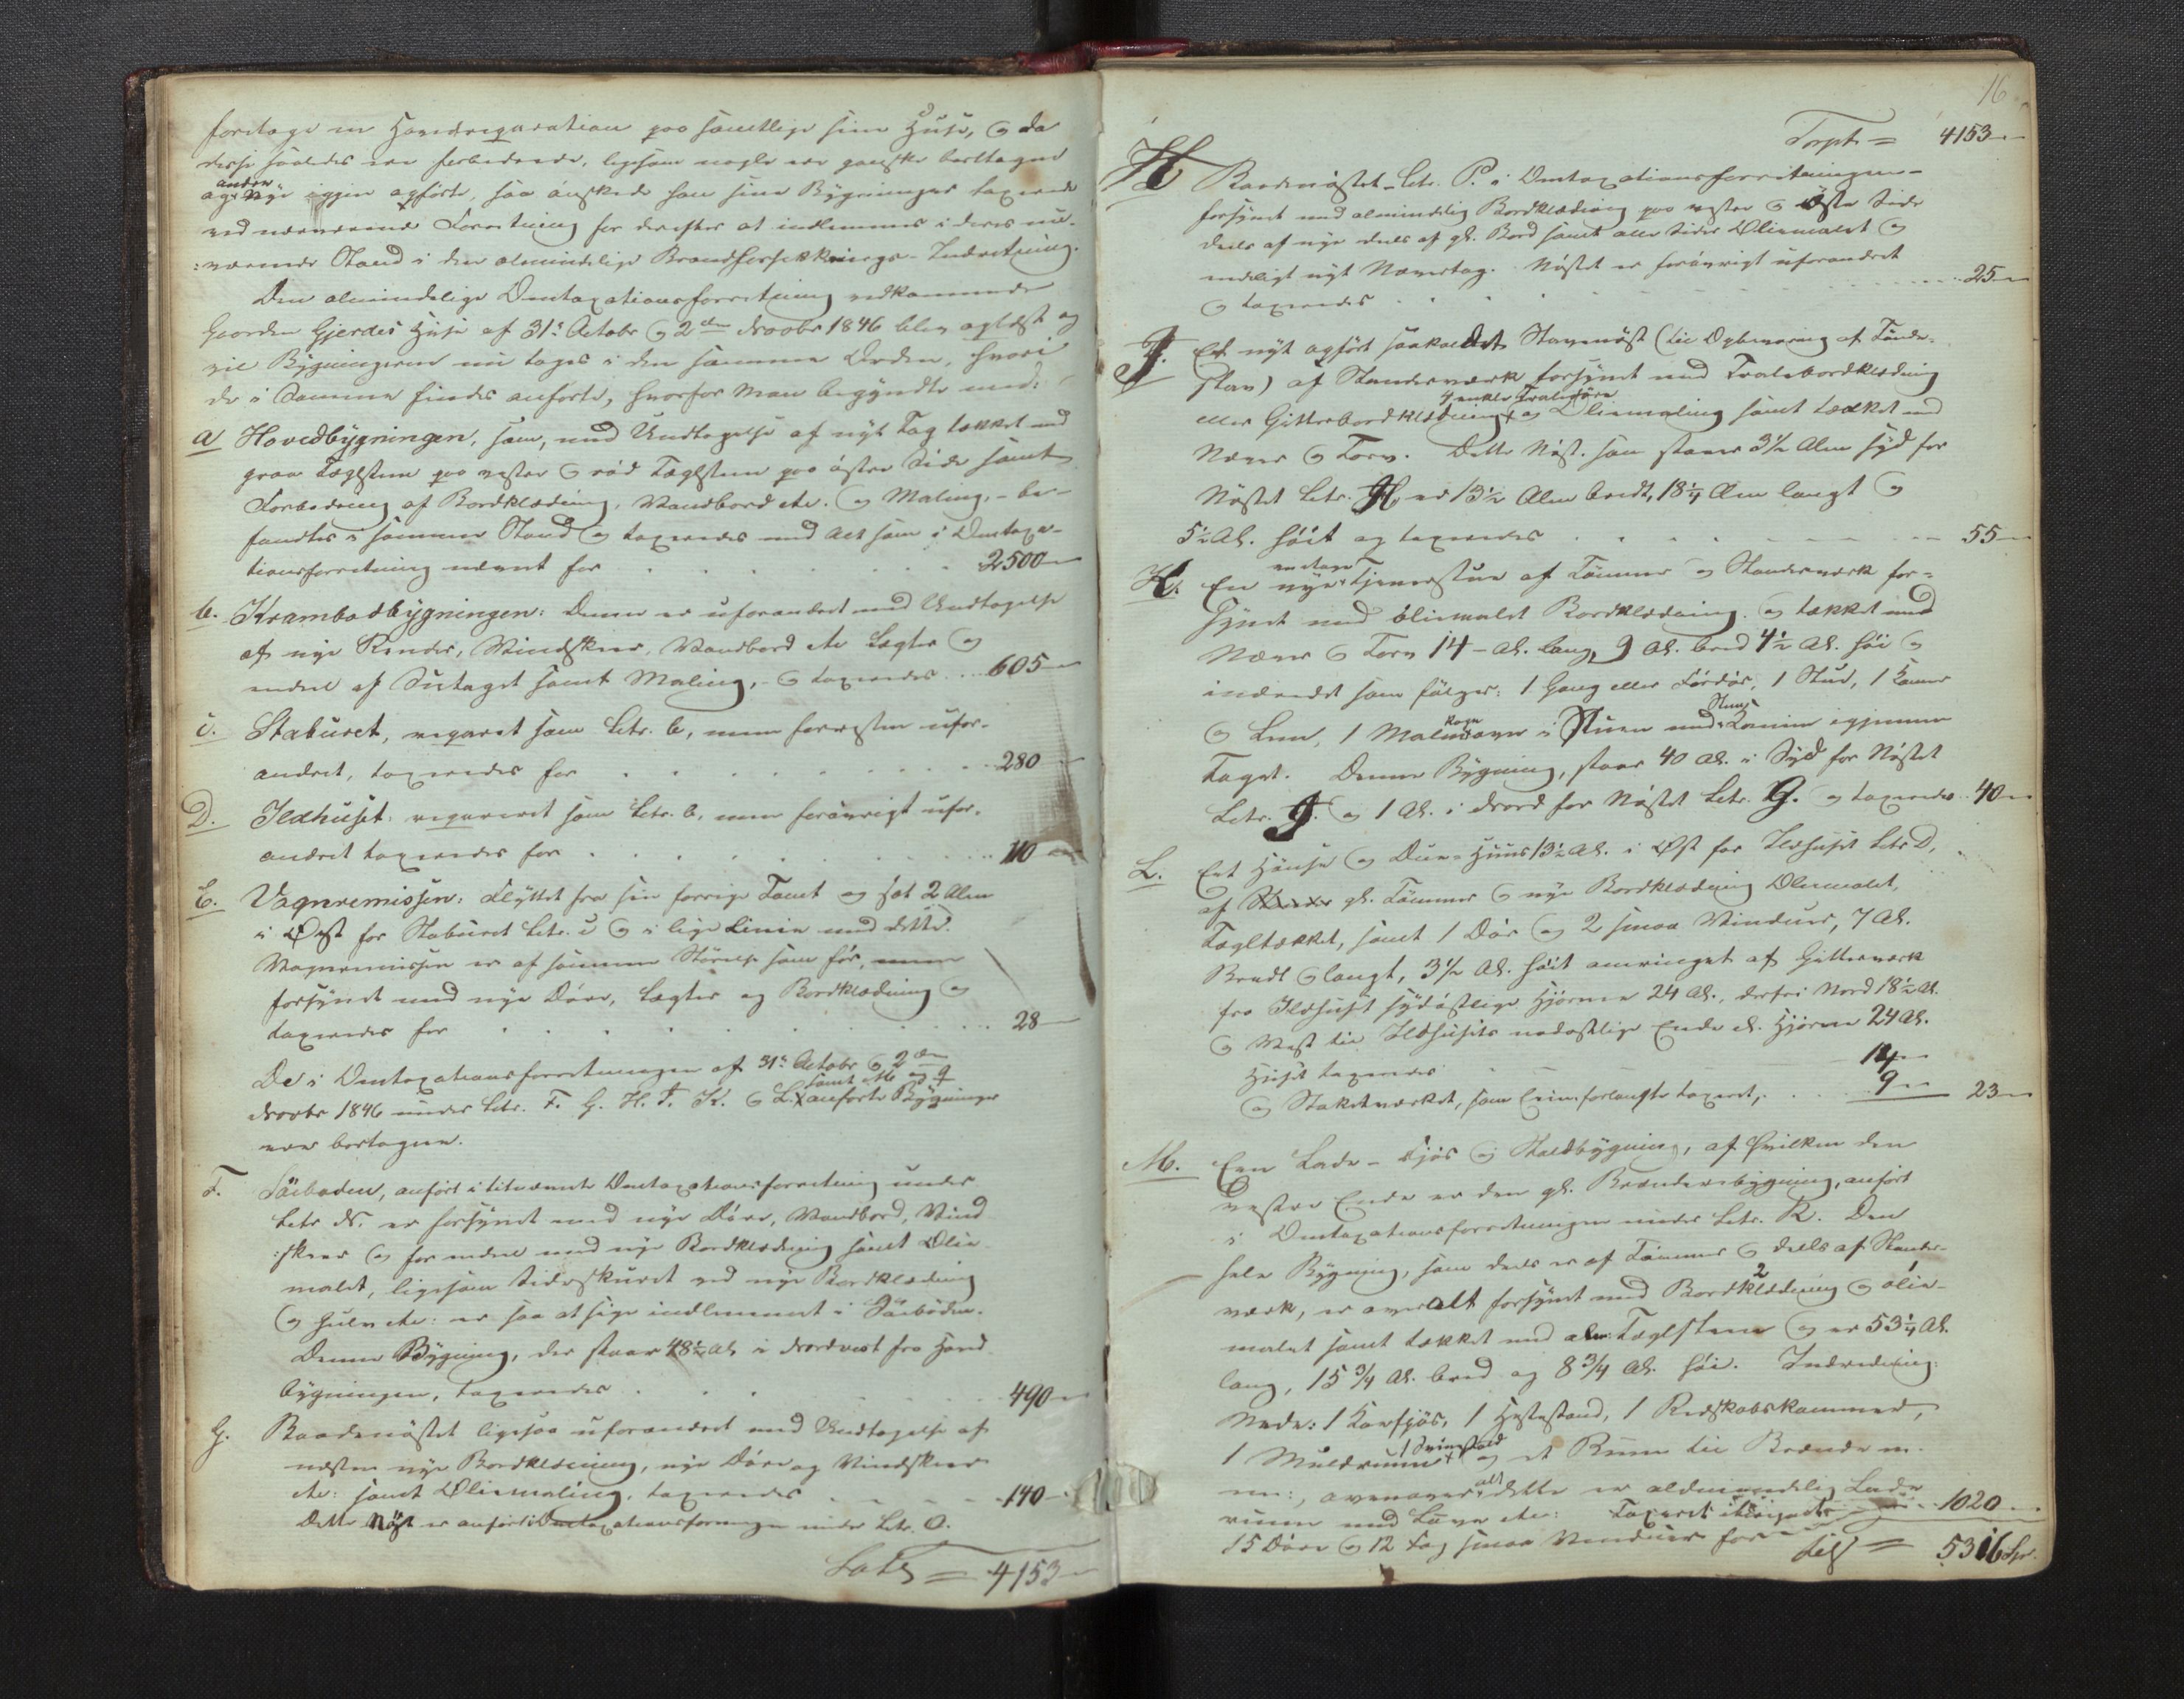 foretage en Hovedreparation paa samtlige sine Huse, og da
disse saaledes ere forbedrede, ligesom nogle ere ganske borttagne
og andre nye igjen opførte, saa ønskede han sine Bygninger taxerede
ved nærværende Forretning for derefter at indlemmes i deres nu-
:værende Stand i den almindelige Brandforsikkrings-Indretning.
Den almindelige Omtaxationsforretning vedkommende
Gaarden Gjerdes Huse af 31te Octobr og 2den Novbr 1846 blev oplæst og
vil Bygningerne nu tages i den samme Orden, hvori
de i Samme findes anførte, hvorfor man begyndte med:
a Hovedbygningen, som, med Undtagelse af nyt Tag tækket med
graa Taglsteen paa vestre og rød Taglsteen paa østre Side samt
Forbedring af Bordklædning, Vandbord etc. og Maling, - be-
fandtes i samme Stand og taxeredes med Alt som i Omtaxa-
tionsforretning nævnt for 2500
b. Krambodbygningen: Denne er uforandret med Undtagelse
af nye Render, Vindskier, Vandbord etc Lægter og
endeel af Sutaget samt Maling, - og taxeredes 605
c. Staburet, reparert som Litr. b, men forresten ufor-
andret, taxeredes for 280
D. Ildhuset: repareret som Litr. b, men forøvrigt ufor-
andret taxeredes for 110
E. Vognremissen: Flyttet fra sin forrige Tomt og sat 2 Alen
i Øst for Staburet Litr. c og i lige Linie med dette.
Vognremissen er af samme Størrelse som før, men
forsynet med nye Døre, Lægter og Bordklædning og
taxeredes for 28
De i Omtaxationsforretningen af 31te Octobr og 2den
Novbr 1846 under Litr. F. G. H. I. K. og L. samt M og Q anførte Bygninger
ere borttagne.
F. Søeboden, anført i litnævnte Omtaxationsforretning under
Litr N. er forsynet med nye Døre, Vandbord, Vind
:skier og for endeel med nye Bordklædning samt Olie
malet, ligesom Sideskuret ved nye Bordklædning
og Gulv etc: er saa at sige indlemmet i Søeboden.
Denne Bygning, der staar 48½ Al. i Nordvest fra Hoved
bygningen, taxeredes 490
G. Baadenøstet ligesaa uforandret med Undtagelse af
næsten nye Bordklædning, nye Døre og Vindskier
etc: samt Oliemaling, taxeredes 140
Dette Nøst er anført i Omtaxationsforretningen under Litr. O.
Lats = 4153
16
Trspt = 4153
H Baadenøstet Litr. P. i Omtaxationsforretningen -
forsynet med almindelig Bordklædning paa vestre og østre Side
deels af nye deels af gl. Bord samt alle Sider Oliemalet og
endeligt nyt Nævertag. Nøstet er forøvrigt uforandret
og taxeredes 25
I. Et nyt opført saakaldet Stavenøst (til Opbevaring af Tønde-
stav) af Standerværk forsynet med Tralebordklædning
eller Gitterbordklædning, 4 enkle Traledøre og Oliemaling samt tækket med
Næver og Torv. Dette Nøst. som staaer 3½ Alen syd for
Nøstet Litr. H, er 13½ Alen bredt, 18¼ Alen langt og
5½ Al. høit og taxeredes 55
K. En nye en etages Tjenerstue af Tømmer og Standerværk for-
synet med oliemalet Bordklædning og tækket med
Næver og Torv 14 - Al. lang, 9 Al. bred 4½ Al. høi og
indredet som følger: 1 Gang eller Fordør, 1 Stue, 1 Kammer
og Lem, 1 Malm kogeovn i Stuen med Steens Kamin igjennem
Taget. Denne Bygning, staar 40 Al. i Syd for Nøstet
Litr. I. og 1 Al. i Nord for Nøstet Litr. G. og taxeredes 40
L. Et Hønse og Due-Huus 13½ Al. i Øst for Ildhuset Litr D,
af gl. Tømmer og nye Bordklædning Oliemalet,
Tagltækket, samt 1 Dør og 2 smaa Vinduer, 7 Al.
Bredt og langt, 3½ Al. høit omringet af Gitterværk
fra Ildhuset sydøstlige Hjørne 24 Al., derfra Nord 18½ Al.
og Vest til Ildhusets nordostlige Ende el. Hjørne 24 Al.
Huset taxeredes 14
og Stakitværket, som Eieren forlangte taxeret, 9 23
M. Een Lade - Fjøs og Staldbygning, af hvilken den
vestre Ende er den gl. Brænderibygning, anført
i Omtaxationsforretningen under Litr. R. Den
hele Bygning, som deels er af Tømmer og deels af Stander-
værk, er overalt forsynet med Bordklædning og olie-
malet samt tækket med alm: Taglsteen og er 53¼ Al.
lang, 15¾ Al. bred og 8¾ Al. høi. Indredning:
Nede: 1 Kovfjøs, 1 Hestestand, 1 Redskabskammer,
1 Muldrum 1 Sviinstald og et Rum til Brænde m.
m:, ovenover alt dette er aldmindelig Lade
rum med Luger etc: Taxeret iberegnet 1020
15 Døre og 12 Fag smaa Vinduer for
Lats = 5316 Spr.